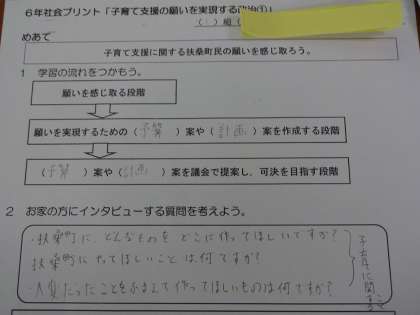 6年社会プリント「子育て支援の願いを実現する政治①」
組
めあて
子育て支援に関する扶桑町民の願いを感じ取ろう。
1 学習の流れをつかもう。
願いを感じ取る段階
願いを実現するための(予算)案や(計画)案を作成する段階
(予算)案や(計画)案を議会で提案し、可決を目指す段階
2 お家の方にインタビューする質問を考えよう。
・扶桑町に、どんなものを どこに作ってほしいですか?
扶桑町に やってほしいことは何ですか?
・大変だったことをふまえて作ってほしいものは何ですか?
子育てに関する